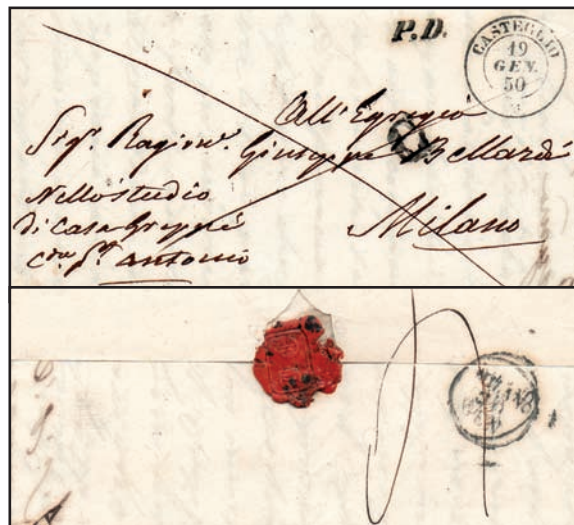 P.D.
CASTEGLIO
19
GEN.
50
All'Egregio
Sig.r Ragion.e Giuseppe Bellardi
Nello studio
di Casa Greppi
Milano
C.da S.t Antonio
MILANO